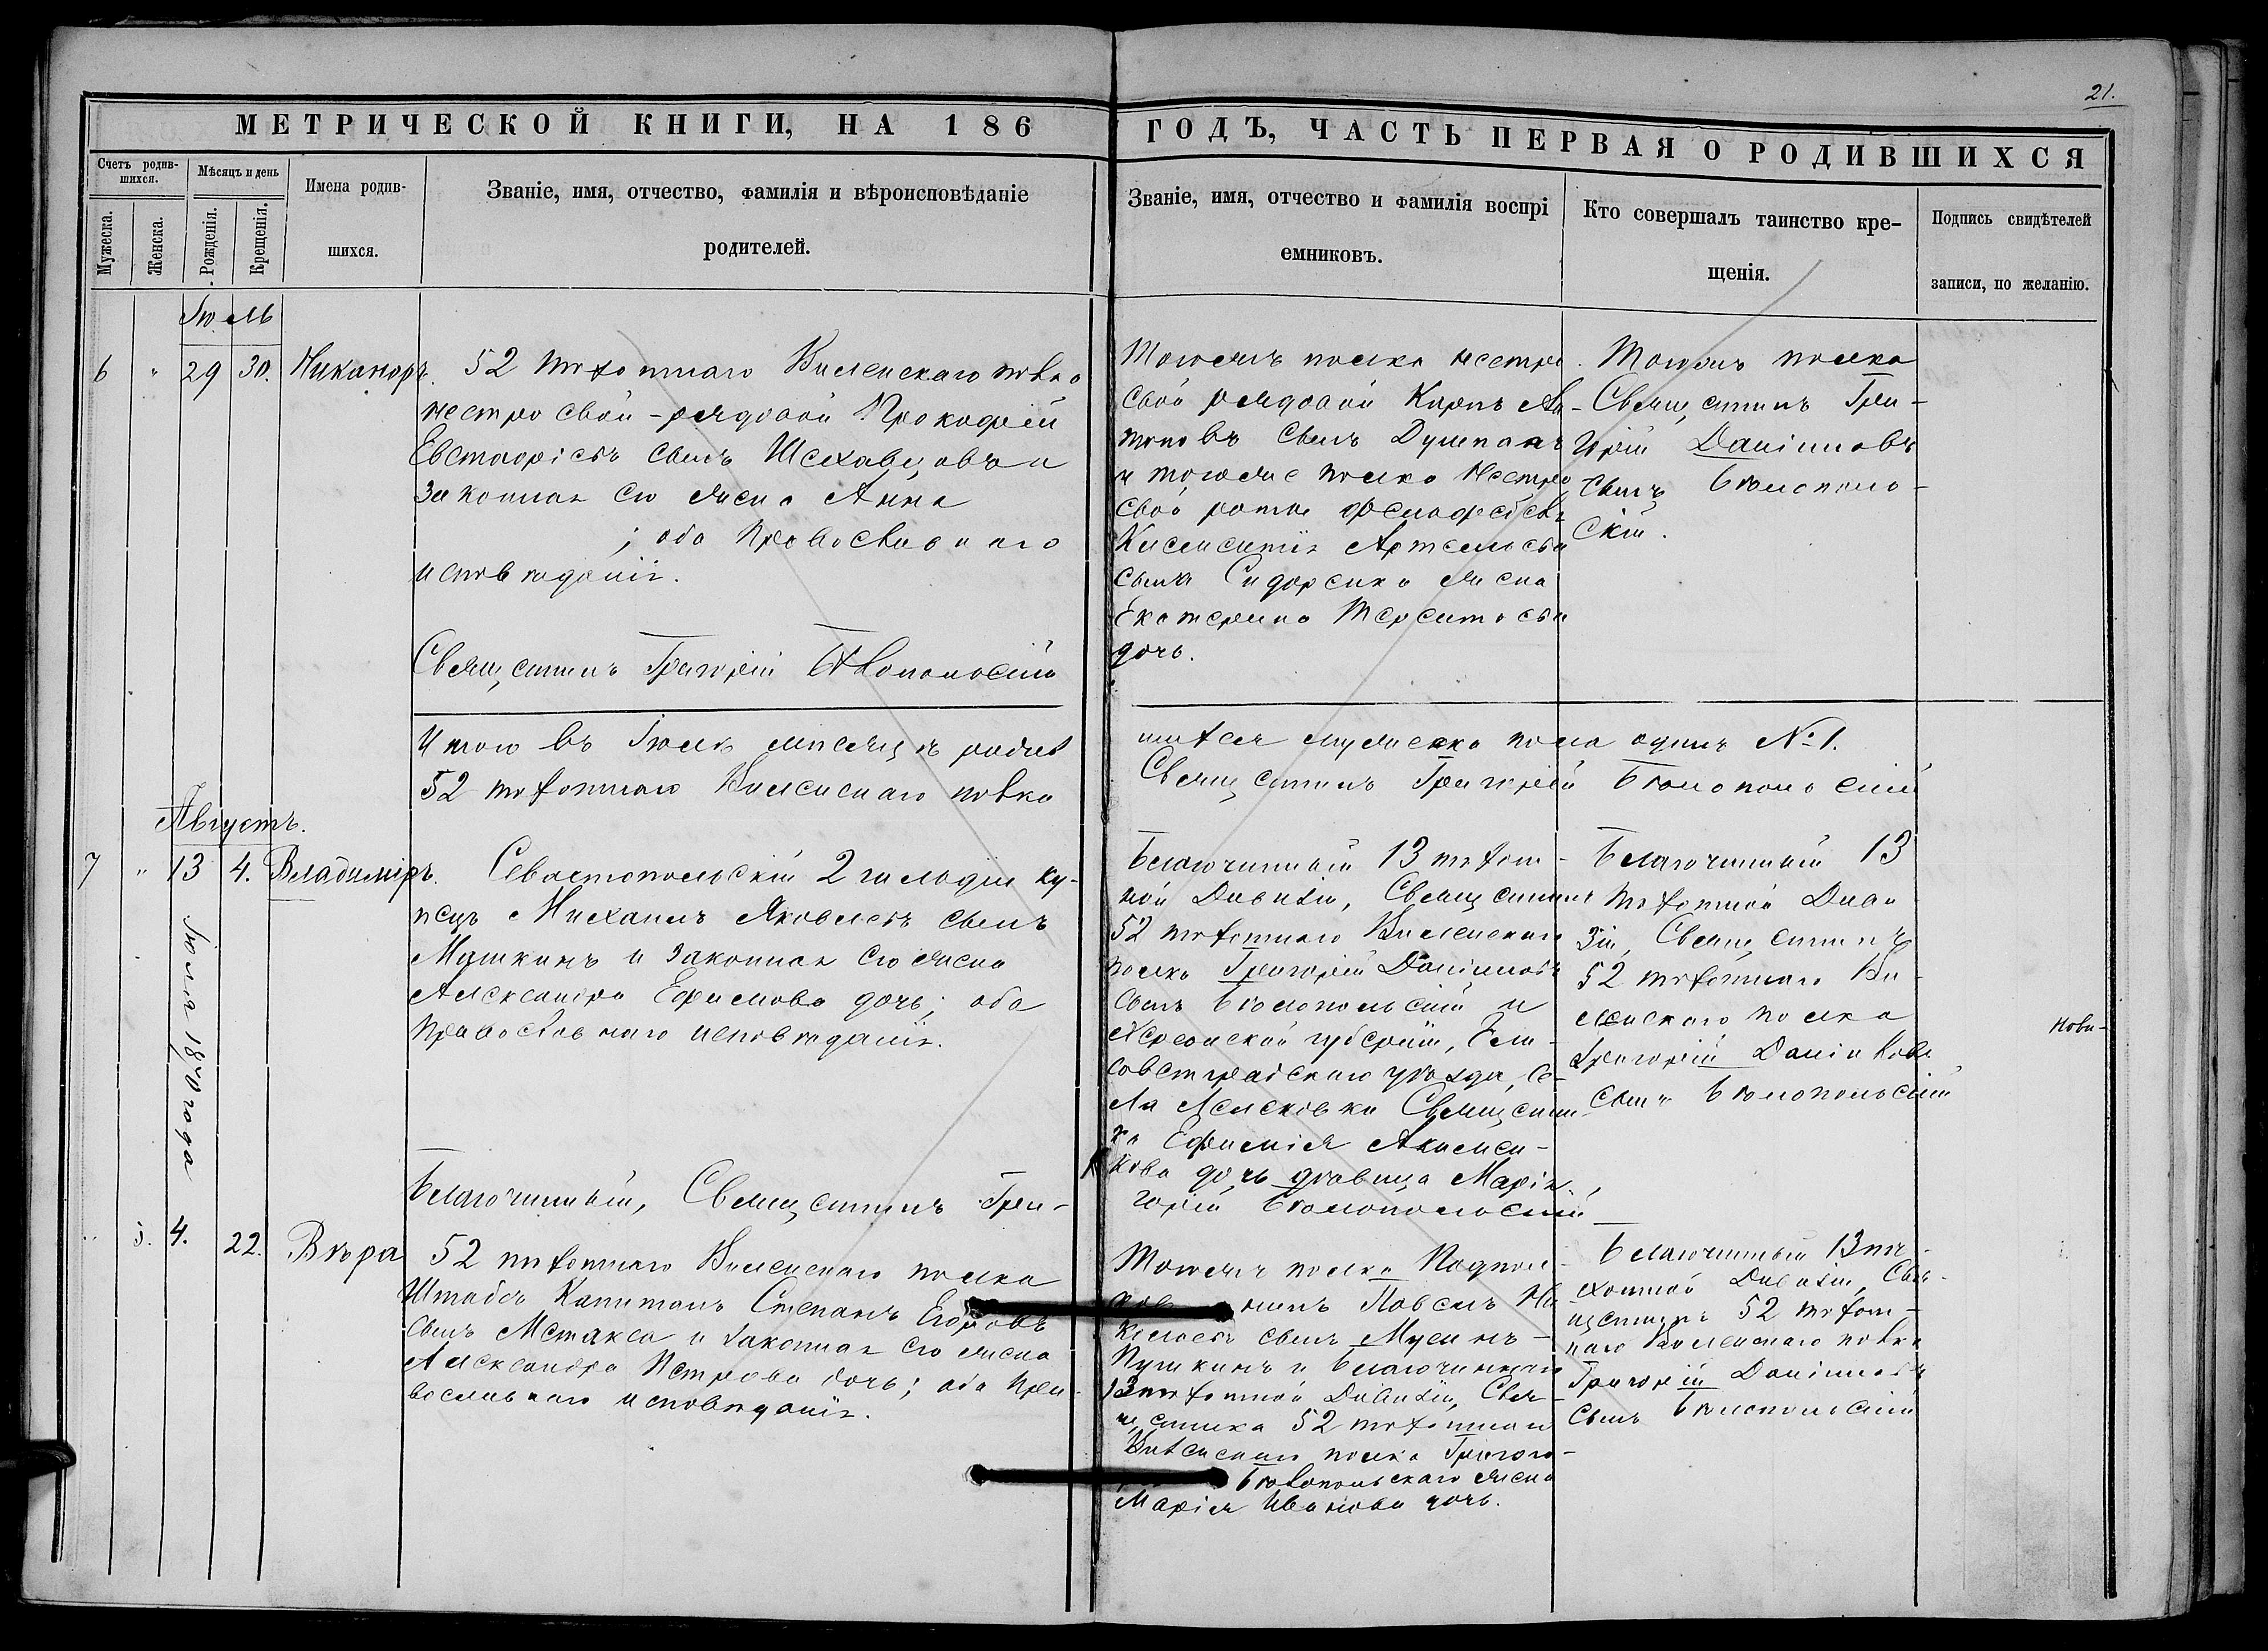 21.
МЕТРИЧЕСКОЙ КНИГИ, НА 186
ГОДЪ, ЧАСТЬ ПЕРВАЯ О РОДИВШИХСЯ
Счетъ родив-
шихся.
Мужеска.
Женска.
Мѣсяцъ и день
Рожденія.
Крещенія.
Имена родив-
шихся.
Званіе, имя, отчество, фамилія и вѣроисповѣданіе
родителей.
Званіе, имя, отчество и фамилія воспрі
емниковъ.
Кто совершалъ таинство кре-
щенія.
Подпись свидѣтелей
записи, по желанію.
Іюль
6 " 29 30. Никаноръ.
52 пѣхотнаго Виленскаго полка
нестроевой-рядовой Прокофій
Евстафіевъ сынъ Шехавцовъ и
законная его жена Анна
; оба Православнаго
исповѣданія.
Священникъ Григорій Бѣлопольскій
Тогожъ полка нестро
евой рядовой Карпъ Ан-
тоновъ сынъ
и тогоже полка Нестро
евой роты фельдфебеля
Климентія Артемьева
сына Сидоренко жена
Екатерина Терентьева
дочь.
Тогожъ полка
Священникъ Гри-
горій Даніиловъ
сынъ Бѣлополь-
скій.
Итого въ Іюлѣ мѣсяцѣ родил
ился мужеска пола одинъ №1.
52 пѣхотнаго Виленскаго полка
Священникъ Григорій Бѣлопольскій
Августъ.
7 " 13 4. Владиміръ.
Іюля 1870 года
Севастопольскій 2 гильдіи ку-
пецъ Михаилъ Яковлевъ сынъ
Машкинъ и законная его жена
Александра Ефимова дочь; оба
Православнаго исповѣданія.
Благочинный, Священникъ Гри-
горій Бѣлопольскій
Благочинный 13 пѣхот-
ной Дивизіи, Священникъ
52 пѣхотнаго Виленскаго
полка Григорій Даніиловъ
сынъ Бѣлопольскій и
Херсонской губерніи, Ели-
саветградскаго уѣзда, Се-
ла Священни
ка Ефимія
кова дочь дѣвица Марія.
Благочинный 13
пѣхотной Диви
зіи, Священникъ
52 пѣхотнаго Ви-
ленскаго полка
Григорій Даніилов
сынъ Бѣлопольскій
нови-
" 5. 4. 22. Вѣра
52 пѣхотнаго Виленскаго полка
Штабсъ Капитанъ Степанъ Егоровъ
сынъ Метакса и законная его жена
Александра Петрова дочь; оба Пра-
вославнаго исповѣданія.
Тогожъ полка Подпол-
Павелъ Ни
колаевъ сынъ Мусинъ-
Пушкинъ и Благочиннаго
13 пѣхотной Дивизіи, Свя-
щенника 52 пѣхотнаго
Виленскаго полка Григорі-
Бѣлопольскаго жена
Марія Иванова дочь.
Благочинный 13 пѣ-
хотной Дивизіи, Свя-
щенникъ 52 пѣхот-
наго Виленскаго полка
Григорій Даніиловъ
сынъ Бѣлопольскій